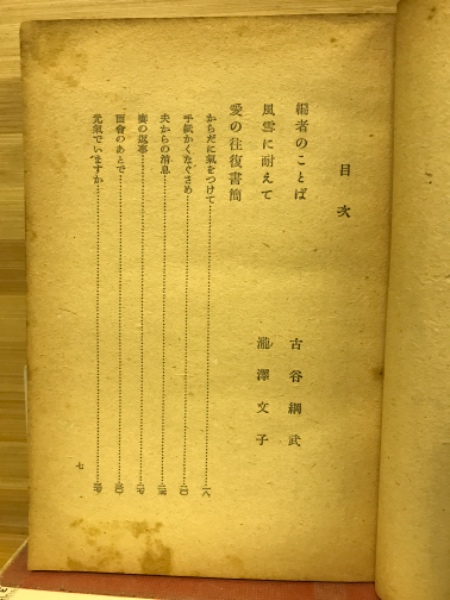 目次
編者のことば 古谷綱武
風雪に耐えて 瀧澤文子
愛の往復書簡
からだに氣をつけて 一八
手紙かくなぐさめ 二〇
夫からの消息
妻の返事
面會のあとで
元氣でいますか
七